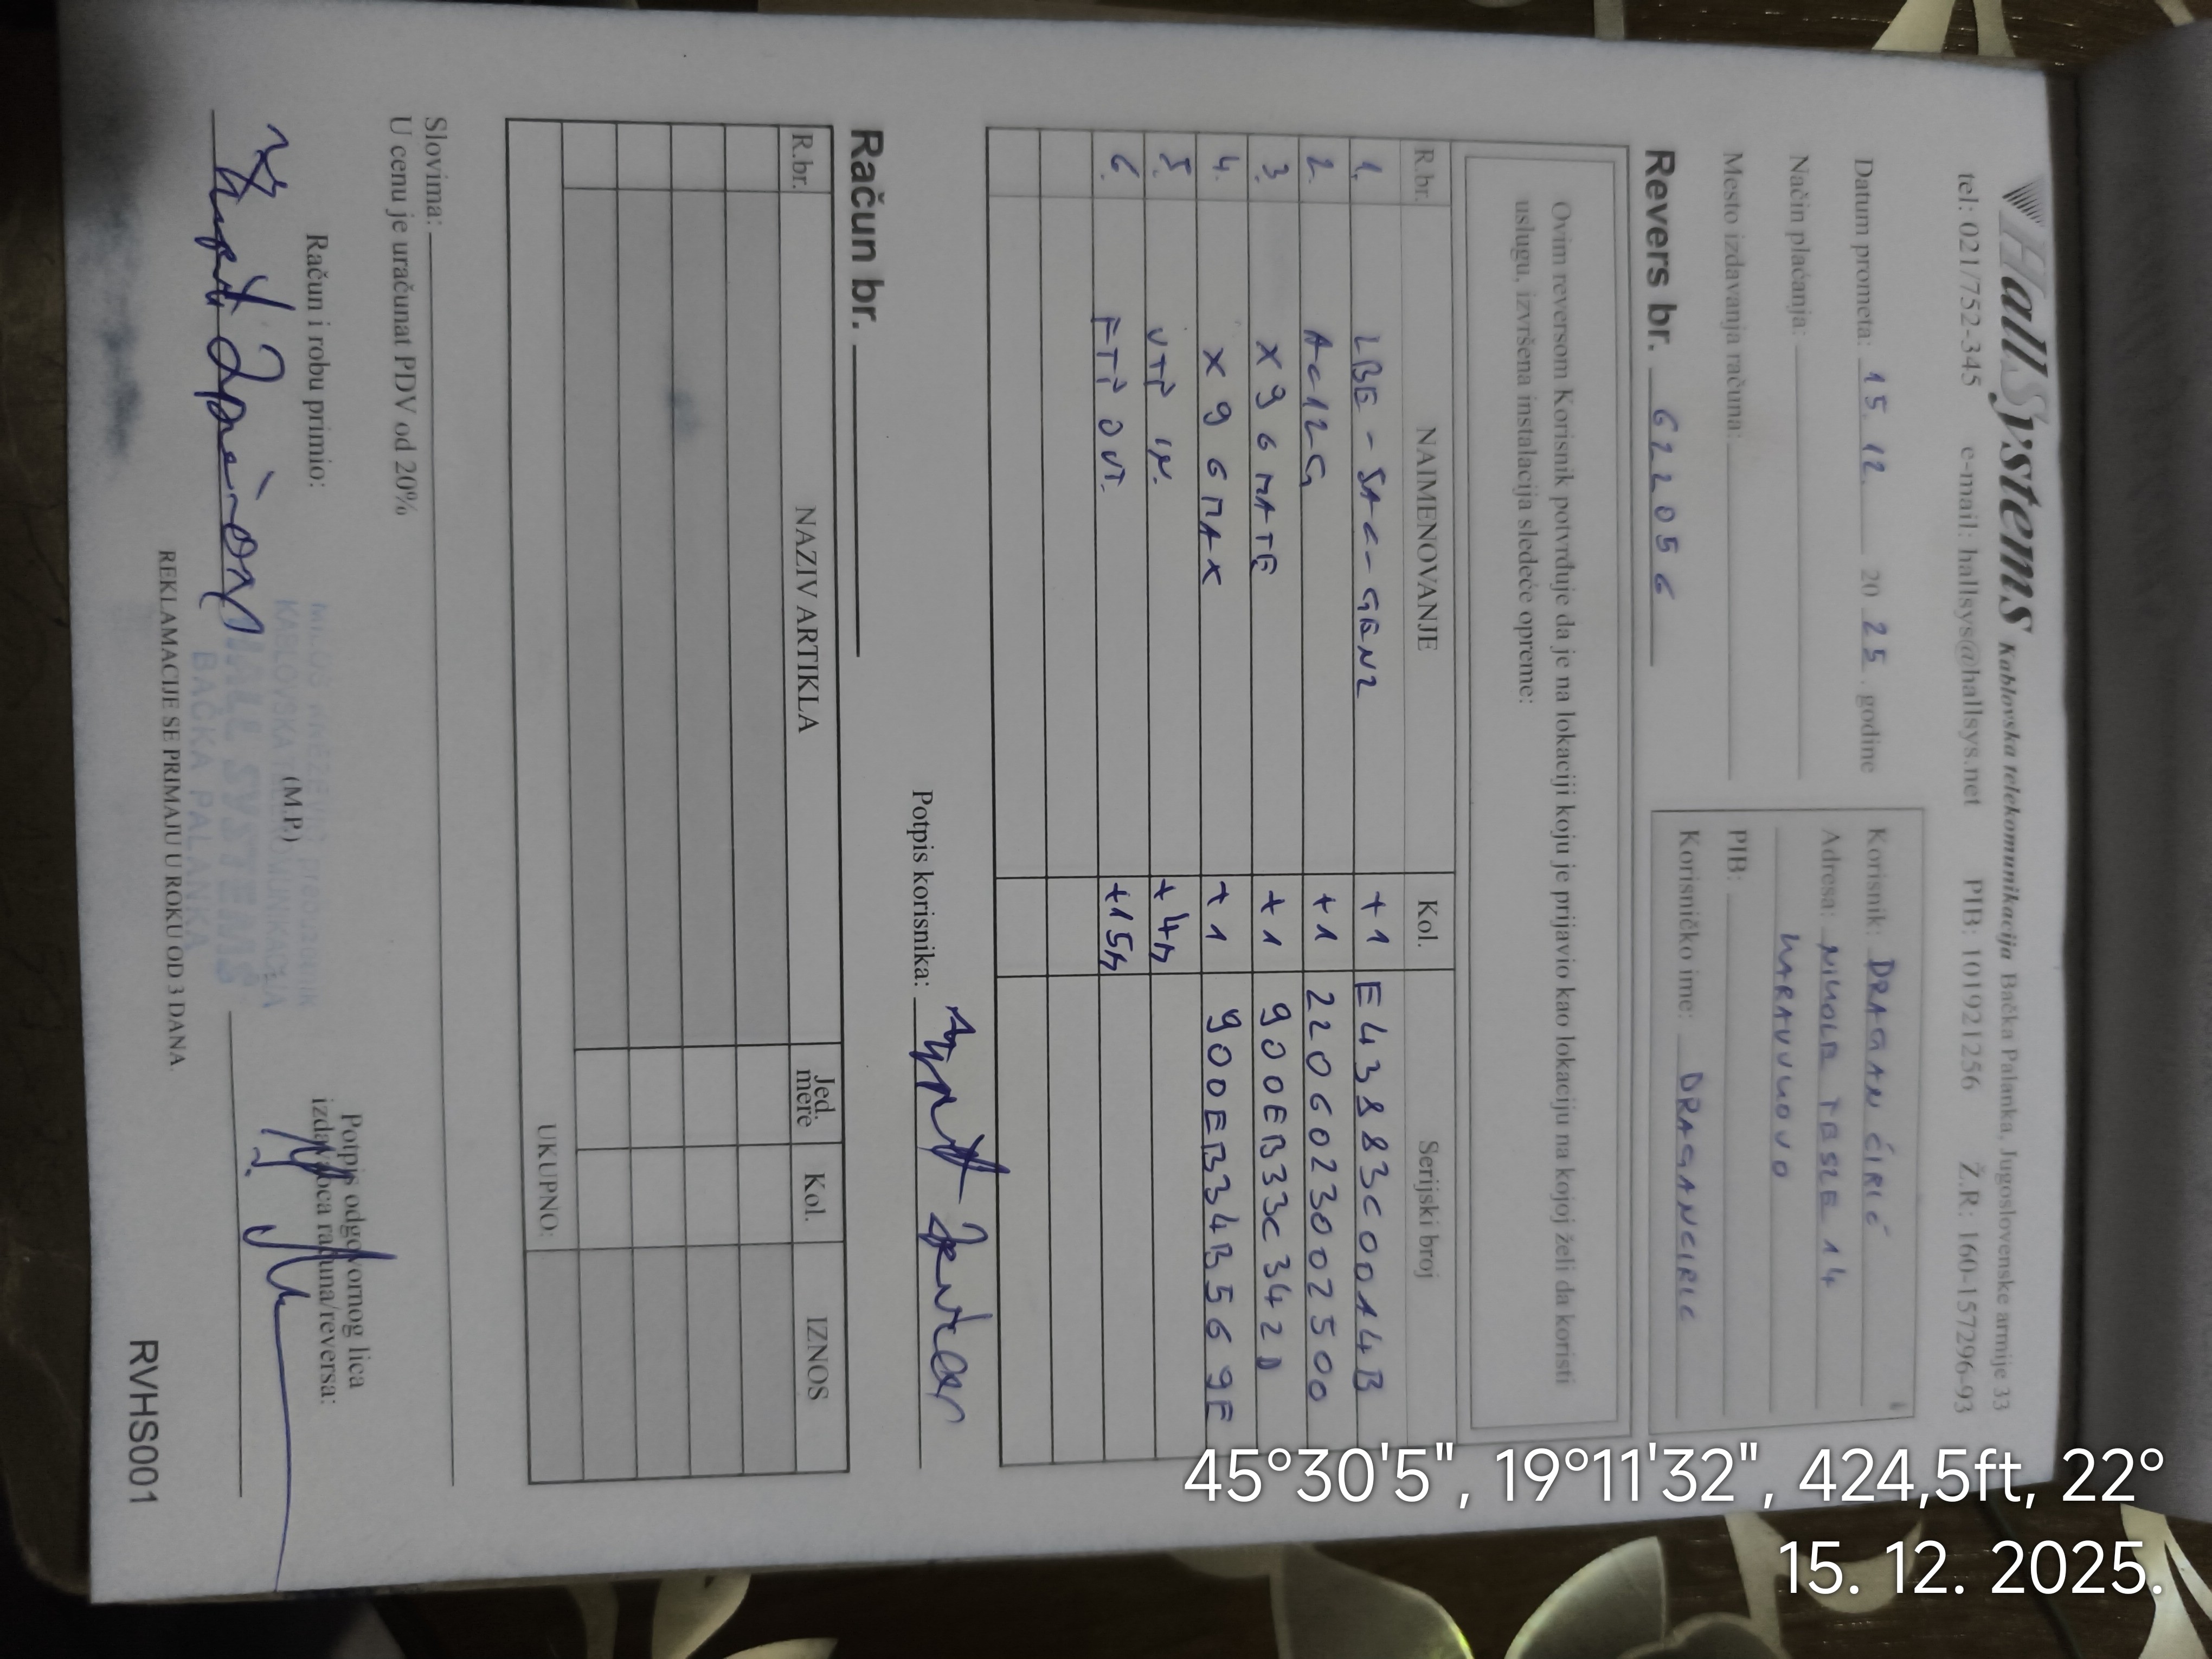 HallSystems Kablovska telekomunikacija Bačka Palanka, Jugoslovenske armije 33
tel: 021/752-345 e-mail: hallsys@hallsys.net PIB: 101921256 Ž.R: 160-157296-93
Datum prometa: 15. 12. 20 25. godine
Način plaćanja:
Mesto izdavanja računa:
Korisnik: DRAGAN ĆIRIĆ
Adresa: NIKOLE TESLE 14
KARAVUKOVO
PIB:
Korisničko ime: DRAGANCIRIC
Revers br. 622056
Ovim reversom Korisnik potvrđuje da je na lokaciji koju je prijavio kao lokaciju na kojoj želi da koristi
uslugu, izvršena instalacija sledeće opreme:
R.br. NAIMENOVANJE Kol. Serijski broj
1. LBE-5AC-GEN2 +1 E438883C00A14B
2. AC12G +1 2206023002500
3. X96 MATE +1 900EB33C342D
4. X96 MAX +1 900EB34B569F
5. UTP IN. +4m
6. FTP OUT. +15m
Potpis korisnika:
Račun br.
R.br. NAZIV ARTIKLA Jed. mere Kol. IZNOS
UKUPNO:
Slovima:
U cenu je uračunat PDV od 20%
Račun i robu primio:
(M.P.)
Potpis odgovornog lica
izdavaoca računa/reversa:
KABLOVSKA TELEKOMUNIKACIJA
HALL SYSTEMS
BAČKA PALANKA
REKLAMACIJE SE PRIMAJU U ROKU OD 3 DANA
RVHS001
45°30'5", 19°11'32", 424,5ft, 22°
15. 12. 2025.